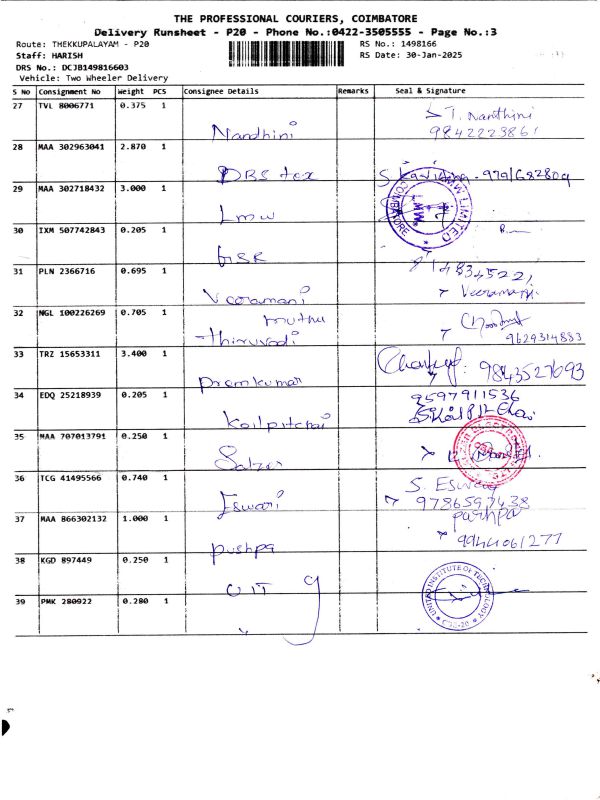 THE PROFESSIONAL COURIERS, COIMBATORE
Delivery Runsheet - P20 - Phone No.:0422-3505555 - Page No.:3
Route: THEKKUPALAYAM - P20
RS No.: 1498166
Staff: HARISH
RS Date: 30-Jan-2025
DRS No.: DCJB149816603
Vehicle: Two Wheeler Delivery
S No Consignment No Weight PCS Consignee Details Remarks Seal & Signature
27 TVL 8006771 0.375 1
Nandhini
T. Nanthini
9842223861
28 MAA 302963041 2.870 1
DBS tex
29 MAA 302718432 3.000 1
Lmw
LMW LIMITED
COIMBATORE
30 IXM 507742843 0.205 1
GSR
31 PLN 2366716 0.695 1
Veeramani
32 NGL 100226269 0.705 1
muthu
Thiruvadi
9629314883
33 TRZ 15653311 3.400 1
Premkumar
9843527693
34 EDQ 25218939 0.205 1
Koilpitchai
9597911536
35 MAA 707013791 0.250 1
36 TCG 41495566 0.740 1
Eswari
S. Eswari
9786597438
37 MAA 866302132 1.000 1
pushpa
9944061277
38 KGD 897449 0.250 1
UIT
UNITED INSTITUTE OF TECHNOLOGY
CBE-20
39 PMK 280922 0.280 1